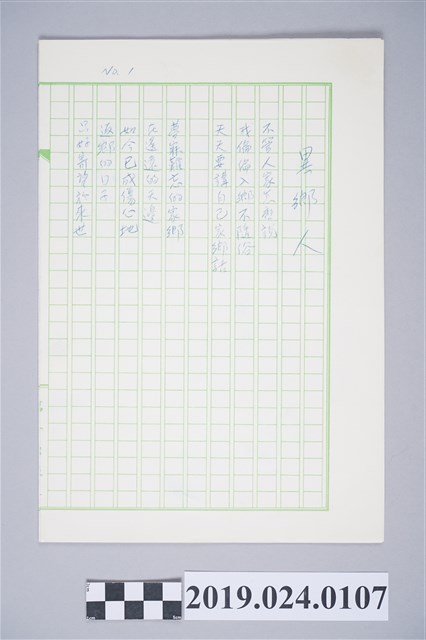 No. 1
異鄉人
不管人家怎麼說
我偏偏入鄉不隨俗
天天要講自己家鄉話
夢寐難忘的家鄉
在遙遠的天邊
如今已成傷心地
返鄉的日子
只好寄望於來世
2019.024.0107